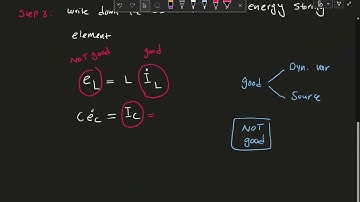 Step 3: write down energy storing
element
NOT good good
e_L = L İ_L
C ė_C = I_C =
good Dyn. var
Source
NOT
good